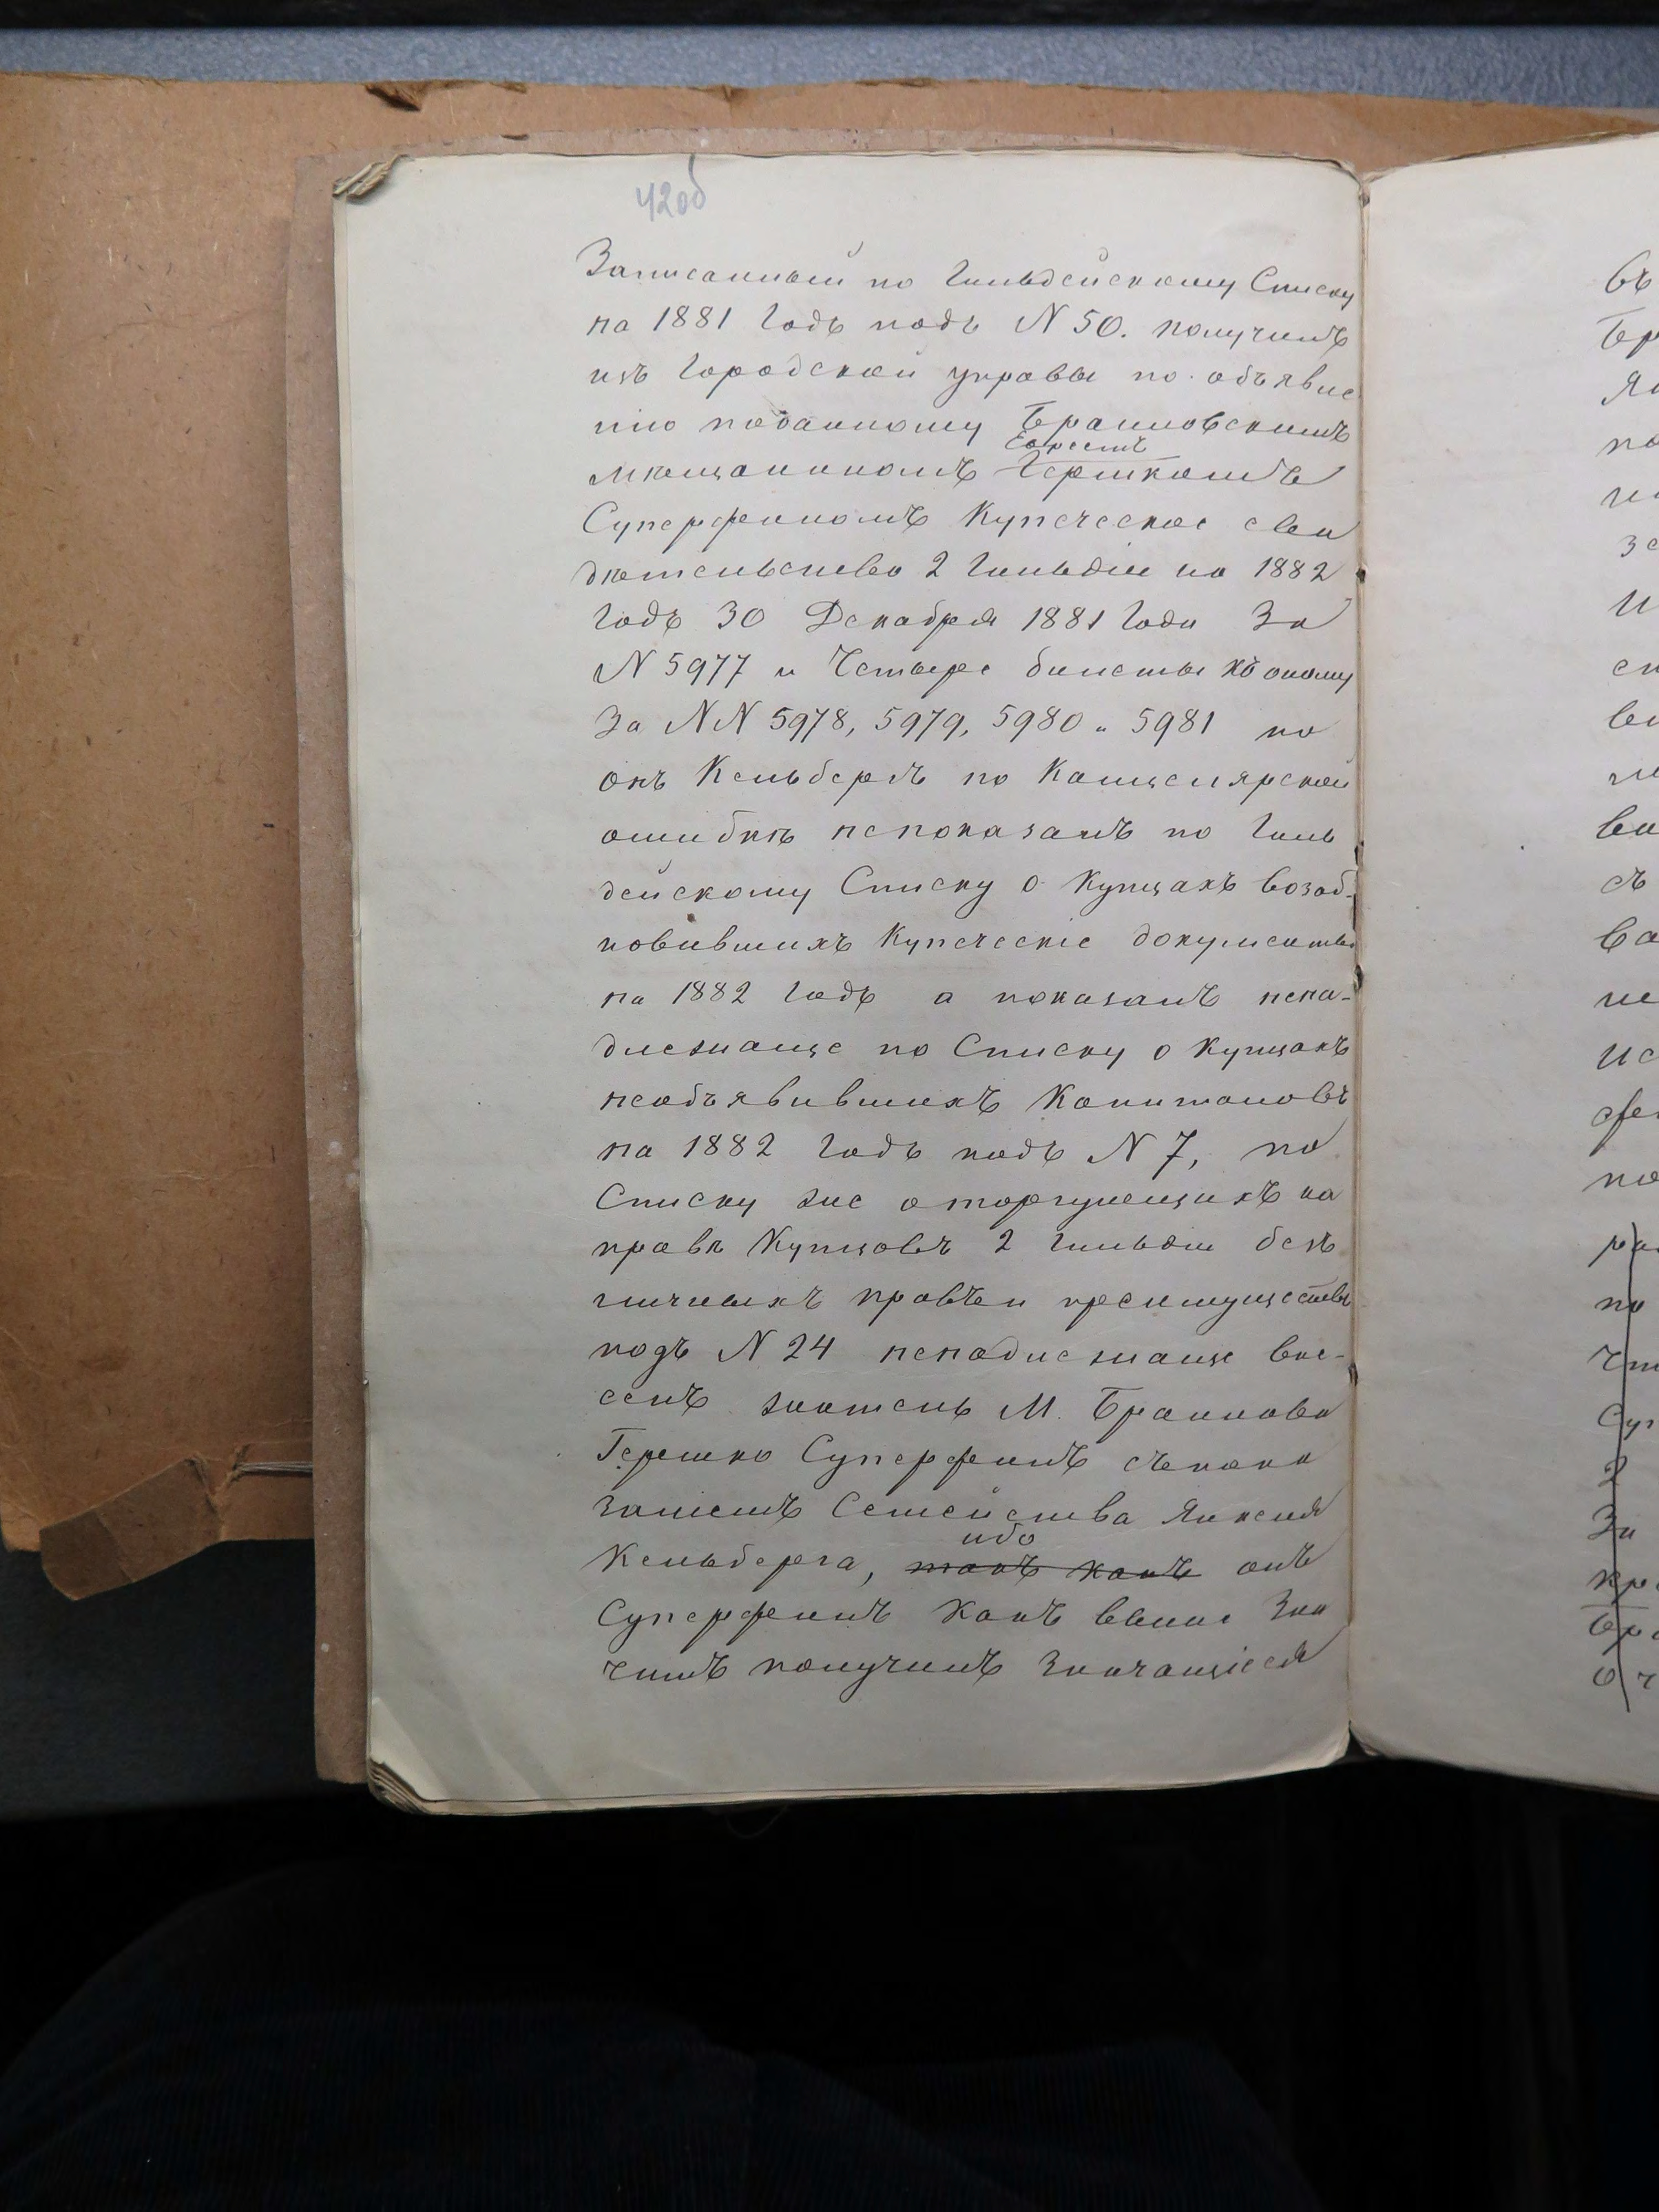 42об
Записанный по Гильдейскому Списку
на 1881 годъ подъ N 50. получилъ
изъ Городской управы по объявле
нію поданному Браиловскимъ
Евреемъ
мѣщаниномъ Гершкомъ
Суперфиномъ Купеческое сви
дѣтельство 2 гильдіи на 1882
годъ 30 Декабря 1881 года За
N 5977 и Четыре билеты къ оному
За NN 5978, 5979, 5980 и 5981 но
онъ Кельберъ по Канцелярской
ошибкѣ непоказанъ по Гиль
дейскому Списку о Купцахъ возоб-
новившихъ Купеческіе документы
на 1882 годъ а показанъ нена-
длежаще по Списку о купцахъ
необъявившихъ Капиталовъ
на 1882 годъ подъ N 7, по
Списку же о торгующихъ на
правѣ Купцовъ 2 гильдіи безъ
личныхъ правъ и преимуществъ
подъ N 24 ненадлежаще вне-
сенъ житель М. Браилова
Гершко Суперфинъ
Семейства Янкеля
ибо
Кельберга, такъ какъ онъ
Суперфинъ какъ выше зна
читъ получилъ значащіеся
въ
Бр